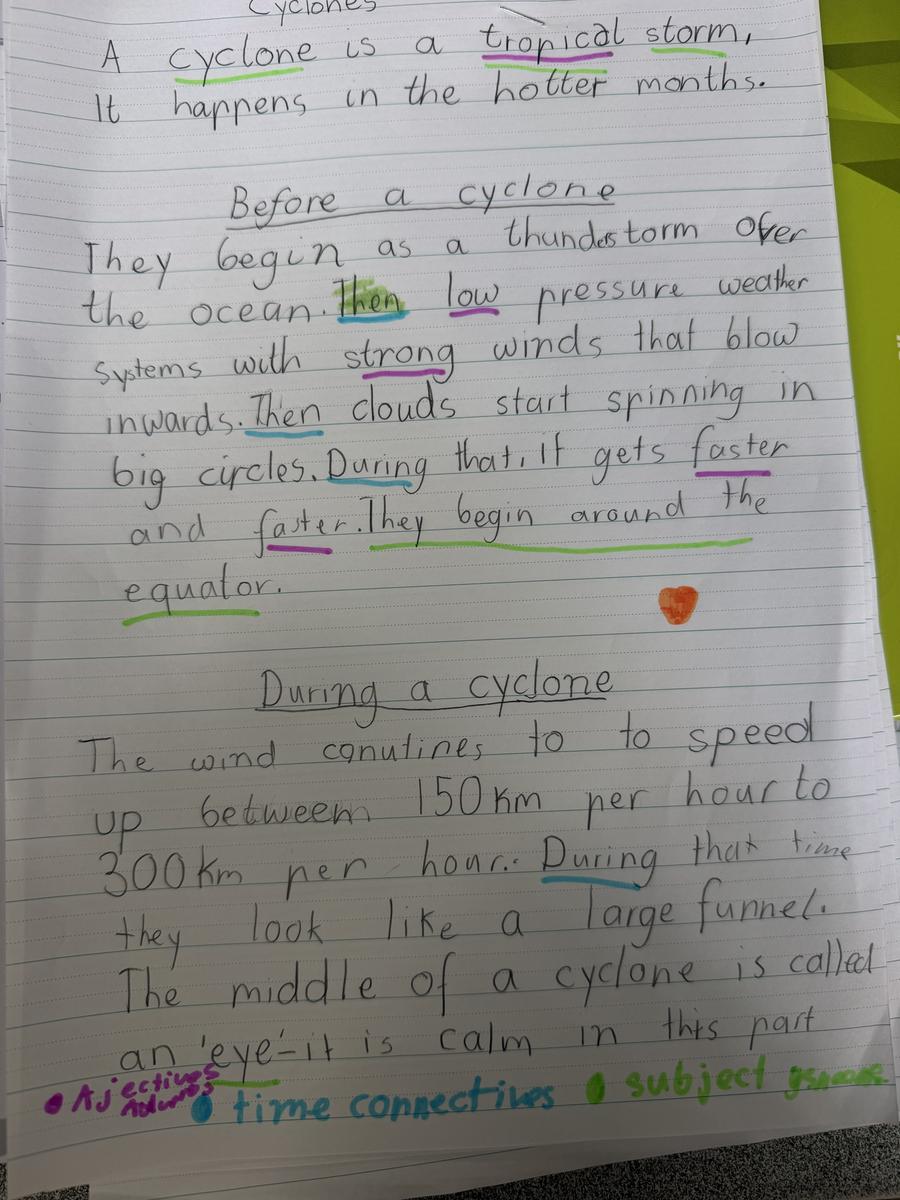 Cyclones
A cyclone is a tropical storm,
It happens in the hotter months.
Before a cyclone
They begin as a thunderstorm over
the ocean. Then low pressure weather
systems with strong winds that blow
inwards. Then clouds start spinning in
big circles. During that, it gets faster
and faster. They begin around the
equator.
During a cyclone
The wind conutines to to speed
up betweem 150km per hour to
300km per hour. During that time
they look like a large funnel.
The middle of a cyclone is called
an 'eye'-it is calm in this part
Ajectives
time connectives
subject